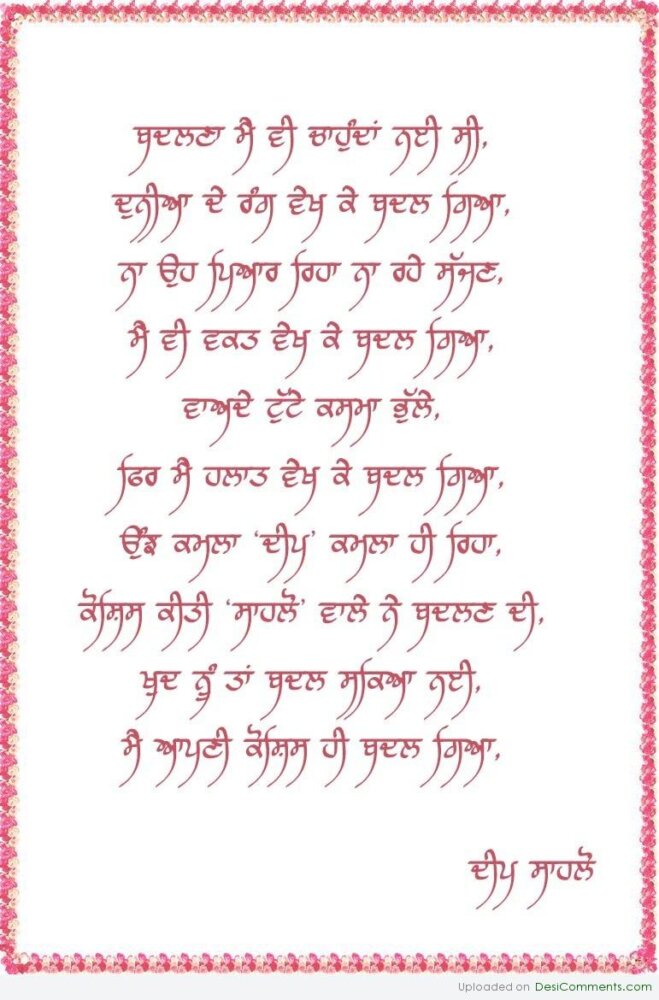 ਬਦਲਣਾ ਮੈ ਵੀ ਚਾਹੁੰਦਾਂ ਨਈ ਸੀ,
ਦੁਨੀਆ ਦੇ ਰੰਗ ਵੇਖ ਕੇ ਬਦਲ ਗਿਆ,
ਨਾ ਉਹ ਪਿਆਰ ਰਿਹਾ ਨਾ ਰਹੇ ਸੱਜਣ,
ਮੈ ਵੀ ਵਕਤ ਵੇਖ ਕੇ ਬਦਲ ਗਿਆ,
ਵਾਅਦੇ ਟੁੱਟੇ ਕਸਮਾ ਭੁੱਲੇ,
ਫਿਰ ਮੈ ਹਲਾਤ ਵੇਖ ਕੇ ਬਦਲ ਗਿਆ,
ਉਂਝ ਕਮਲਾ ‘ਦੀਪ’ ਕਮਲਾ ਹੀ ਰਿਹਾ,
ਕੋਸ਼ਿਸ ਕੀਤੀ ‘ਸਾਹਲੋ’ ਵਾਲੇ ਨੇ ਬਦਲਣ ਦੀ,
ਖੁਦ ਨੂੰ ਤਾਂ ਬਦਲ ਸਕਿਆ ਨਈ,
ਮੈ ਆਪਣੀ ਕੋਸ਼ਿਸ ਹੀ ਬਦਲ ਗਿਆ,
ਦੀਪ ਸਾਹਲੋ
Uploaded on DesiComments.com